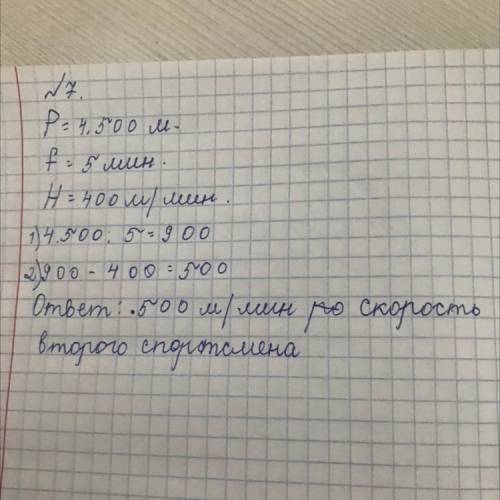 №7.
P = 4.500 м.
t = 5 мин.
H = 400 м/мин.
1) 4.500 : 5 = 900
2) 900 - 400 = 500
Ответ: .500 м/мин скорость
второго спортсмена